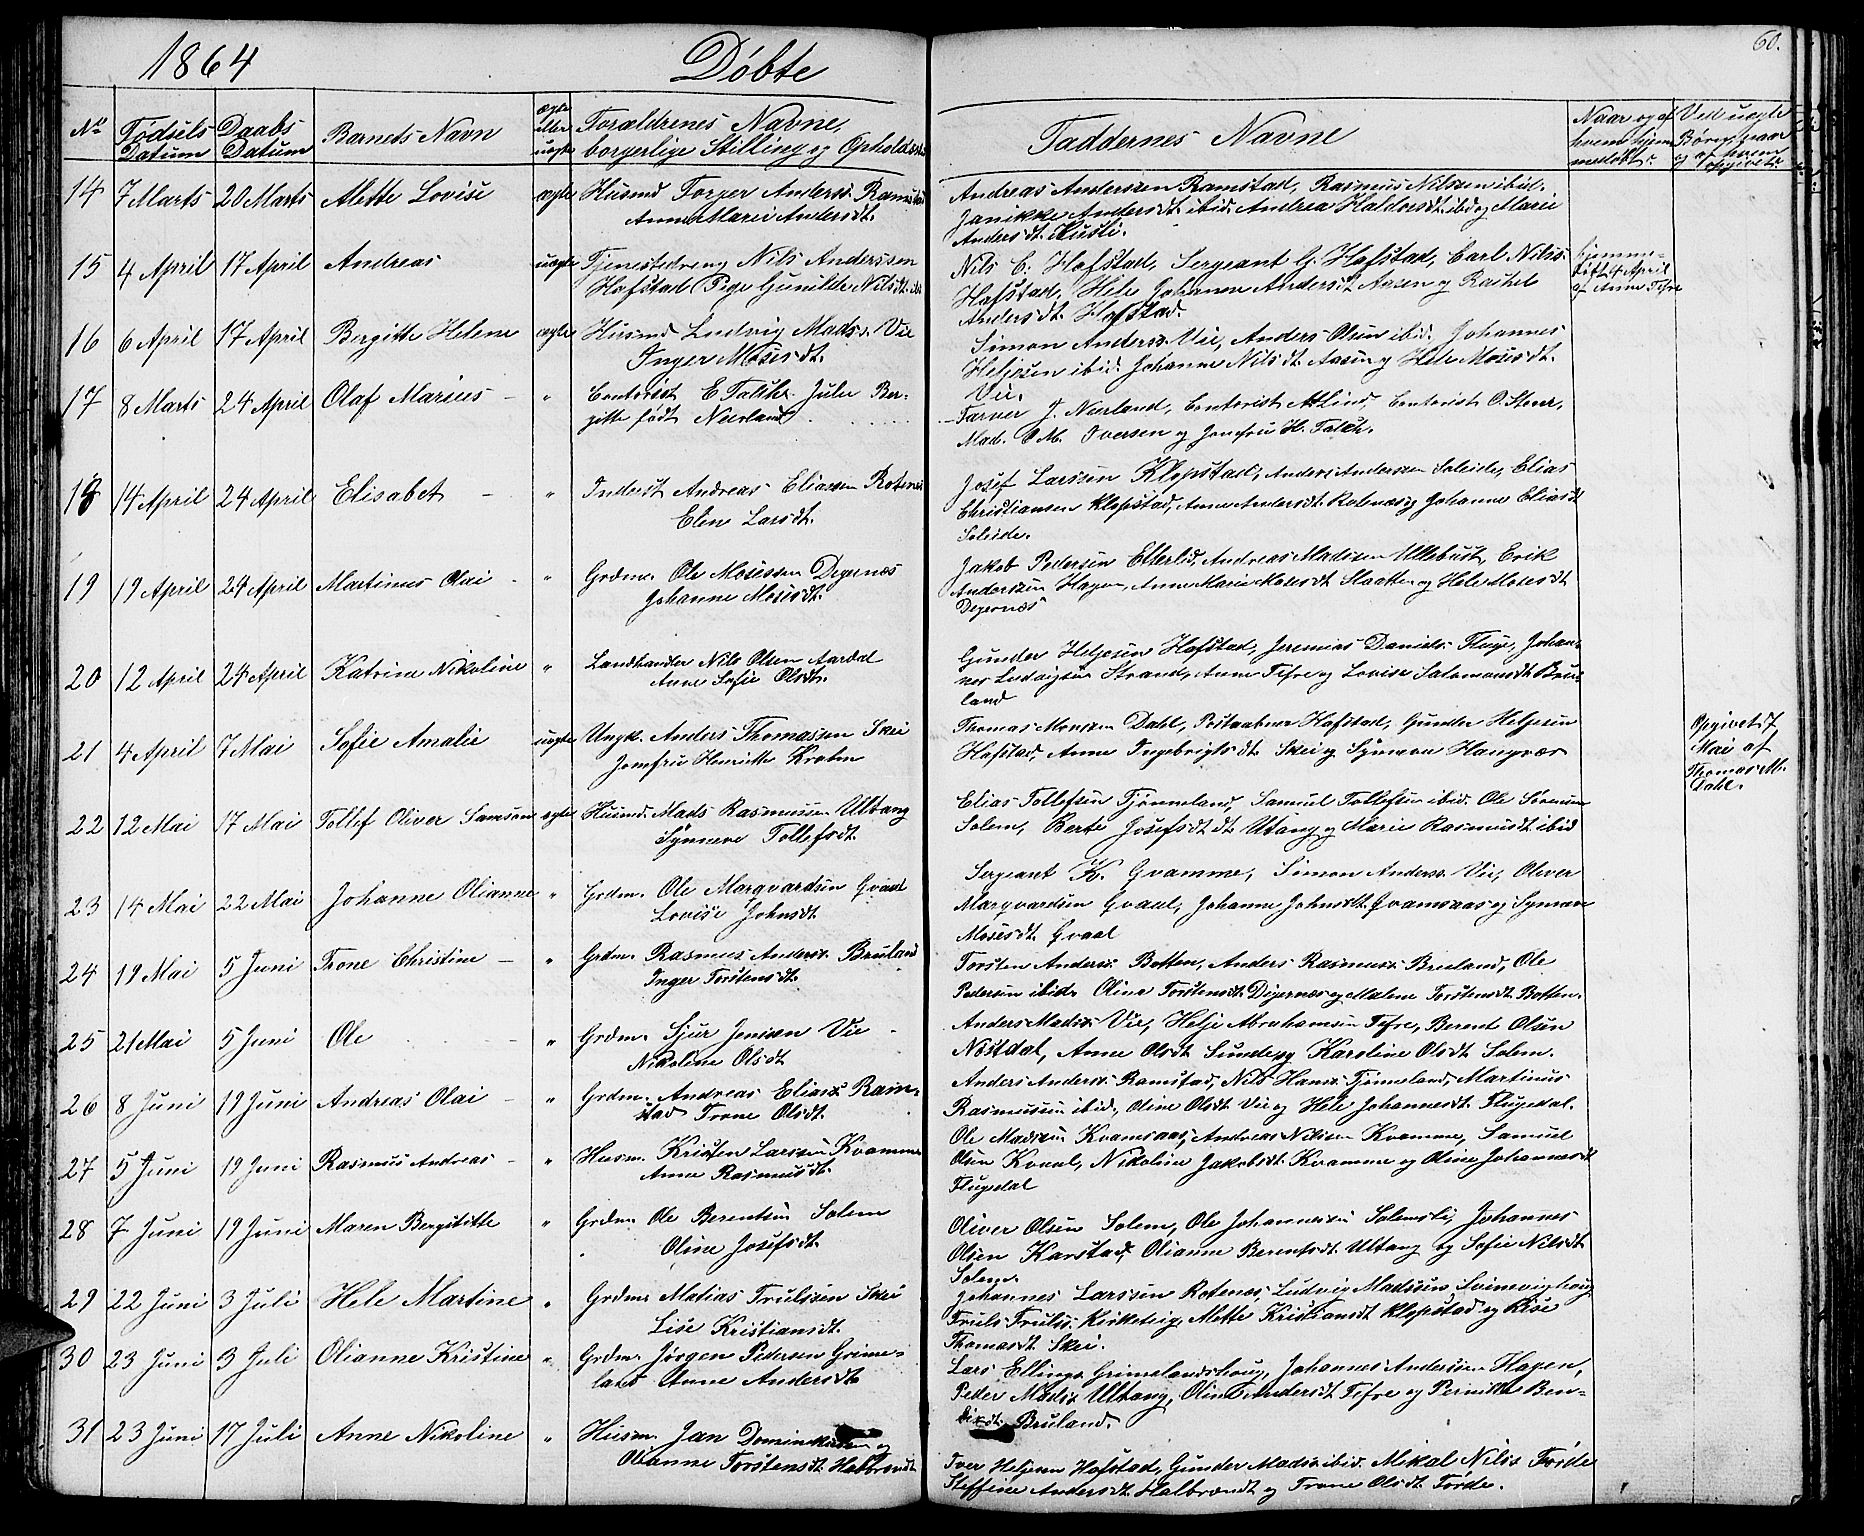 1864
Døbte
60.
No
Fødsels Datum
Daabs Datum
Barnets Navn
ægte eller uægte
Forældrenes Navne, borgerlige Stilling og Opholdssted
Faddernes Navne
Naar og af hvem hjemmedøbt.
Ved uægte Børn, naar og af hvem opgivet.
14 7 Marts 20 Marts Alette Lovise ægte Husmd Torger Anderss. Ramstad
Anne Marie Andersdt.
Andreas Anderssen Ramstad, Rasmus Nilssen ibid.
Janikke Andersdt. ibid. Andrea Haldorsdt. ibid og Marie
Andersdt. Kusli.
15 4 April 17 April Andreas uægte Tjenestedreng Nils Anderssen
Hofstad Pige Gunilde Nilsdt. ibid
Nils C. Hofstad, Sergeant G. Hofstad, Carl Nilss.
Hofstad, Hele Johanne Andersdt. Aasen og Rachel
Andersdt. Hofstad.
hjemmedøbt 4 April
af Anne Tefre
16 6 April 17 April Bergitte Helene ægte Husmd Ludvig Madss. Vie
Inger Mosesdt.
Simon Anderss. Vie, Anders Olsen ibid. Johannes
Heljesen ibid. Johanne Nilsdt. Aasen og Hele Mosesdt.
Vie.
17 8 Marts 24 April Olaf Marius - " Contorist E. Falch. Julie Ber-
gitte født Neerland
Farver J. Neerland, Contorist A. Lind, Contorist O. Steer,
Mad. O. M. Iversen og Jomfru H. Falch.
18 14 April 24 April Elisabet - " Inderst Andreas Eliassen Rotenes
Elen Larsdt.
Josef Larssen Klopstad, Anders Anderssen Soleide, Elias
Christiansen Klopstad, Anne Andersdt. Rotenes og Johanne Eliasdt
Soleide.
19 19 April 24 April Martinus Olai - " Grdm. Ole Mosessen Degernæs
Johanne Mosesdt.
Jakob Pedersen Etterlid, Andreas Madssen Ullebust, Erik
Anderssen Hagen, Anne Marie Mosesdt Slaatten og Hele Mosesdt
Degernæs
20 12 April 24 April Katrine Nikoline " Landhandler Nils Olsen Aardal
Anne Sofie Olsdt.
Gunder Heljesen Hofstad, Jeremias Daniels. Fluge, Johan-
nes Ludvigsen Strand, Anne Tefre og Lovise Salomonsdt Bru-
land
21 4 April 7 Mai Sofie Amalie uægte Ungk. Anders Thomassen Skei
Jomfru Henritte Krohn
Thomas Monssen Dahl, Postaabner Hofstad, Gunder Heljesen
Hofstad, Anne Ingebrigtsdt. Skei og Synneve Haugvær
Opgivet d. 7
Mai af
Thomas M.
Dahl.
22 12 Mai 17 Mai Tollef Oliver Samson ægte Husmd. Mads Rasmussen Ultang
Synneve Tollefsdt.
Elias Tollefsen Tjønneland, Samuel Tollefsen ibid. Ole Sørensen
Solem, Berte Josefsdt dt Utang og Marie Rasmusdt ibid
23 14 Mai 22 Mai Johanne Olianne " Grdm. Ole Marqvardsen Gvaal
Lovise Johnsdt
Sergeant K. Gvamme, Simon Anderss. Vie, Oliver
Marqvardsen Gvaal, Johanne Johnsdt. Qvamsaas og Synneve
Mosesdt. Gvaal
24 19 Mai 5 Juni Trone Christine - " Grdm. Rasmus Anderss. Bruland
Inger Torstensdt.
Torsten Anderss. Botten, Anders Rasmuss. Bruland, Ole
Pedersen ibid. Oline Torstensdt Digernæs og Malene Torstensdt Botten.
25 21 Mai 5 Juni Ole - " Grdm. Sjur Jensen Vie
Nikoline Olsdt
Anders Madss. Vie, Helje Abrahamsen Tefre, Berent Olsen
Nøstdal, Anne Olsdt Sunde og Karoline Olsdt Solem.
26 8 Juni 19 Juni Andreas Olai - " Grdm. Andreas Eliass. Ram-
stad Trone Olsdt.
Anders Anderss. Ramstad, Nils Hanss. Tjønneland, Martinus
Rasmussen ibid., Oline Olsdt Vie og Hele Johannesdt. Flugedal.
27 5 Juni 19 Juni Rasmus Andreas - " Husm. Kristen Larssen Kvamme
Anne Rasmusdt.
Ole Madssen Kvamsaas, Andreas Nilsen Kvamme, Samuel
Olsen Kvaal, Nikoline Jakobsdt. Kvamme og Oline Johannesdt
Flugedal
28 7 Juni 19 Juni Maren Bergitte " Grdm. Ole Berentsen Solem
Oline Josefsdt.
Oliver Olsen Solem, Ole Johannessen Solemsli, Johannes
Olsen Karstad, Olianne Berentsdt. Ultang og Sofie Nilsdt
Solem.
29 22 Juni 3 Juli Hele Martine " Grdm. Matias Trulssen Skei
Lise Kristiansdt.
Johannes Larssen Rotenes, Ludvig Madssen Svinevighoug
Truls Trulss. Kirketeig, Mette Kristiansdt Klopstad og Lise
Thomasdt Skei.
30 23 Juni 3 Juli Olianne Kristine " Grdm. Jørgen Pedersen Grime-
land Anne Andersdt
Lars Ellings. Grimelandshoug, Johannes Anderssen Hagen,
Peder Madss. Ultang, Oline Andersdt Tefre og Pernille Ben-
dixdt. Bruland.
31 23 Juni 17 Juli Anne Nikoline " Husm. Jan Dominikussen og
Olianne Torstensdt. Halbrændt
Iver Heljesen Hofstad, Gunder Madss. ibid. Mikal Nilss. Førde
Steffine Andersdt Halbrændt og Trone Olsdt Førde.